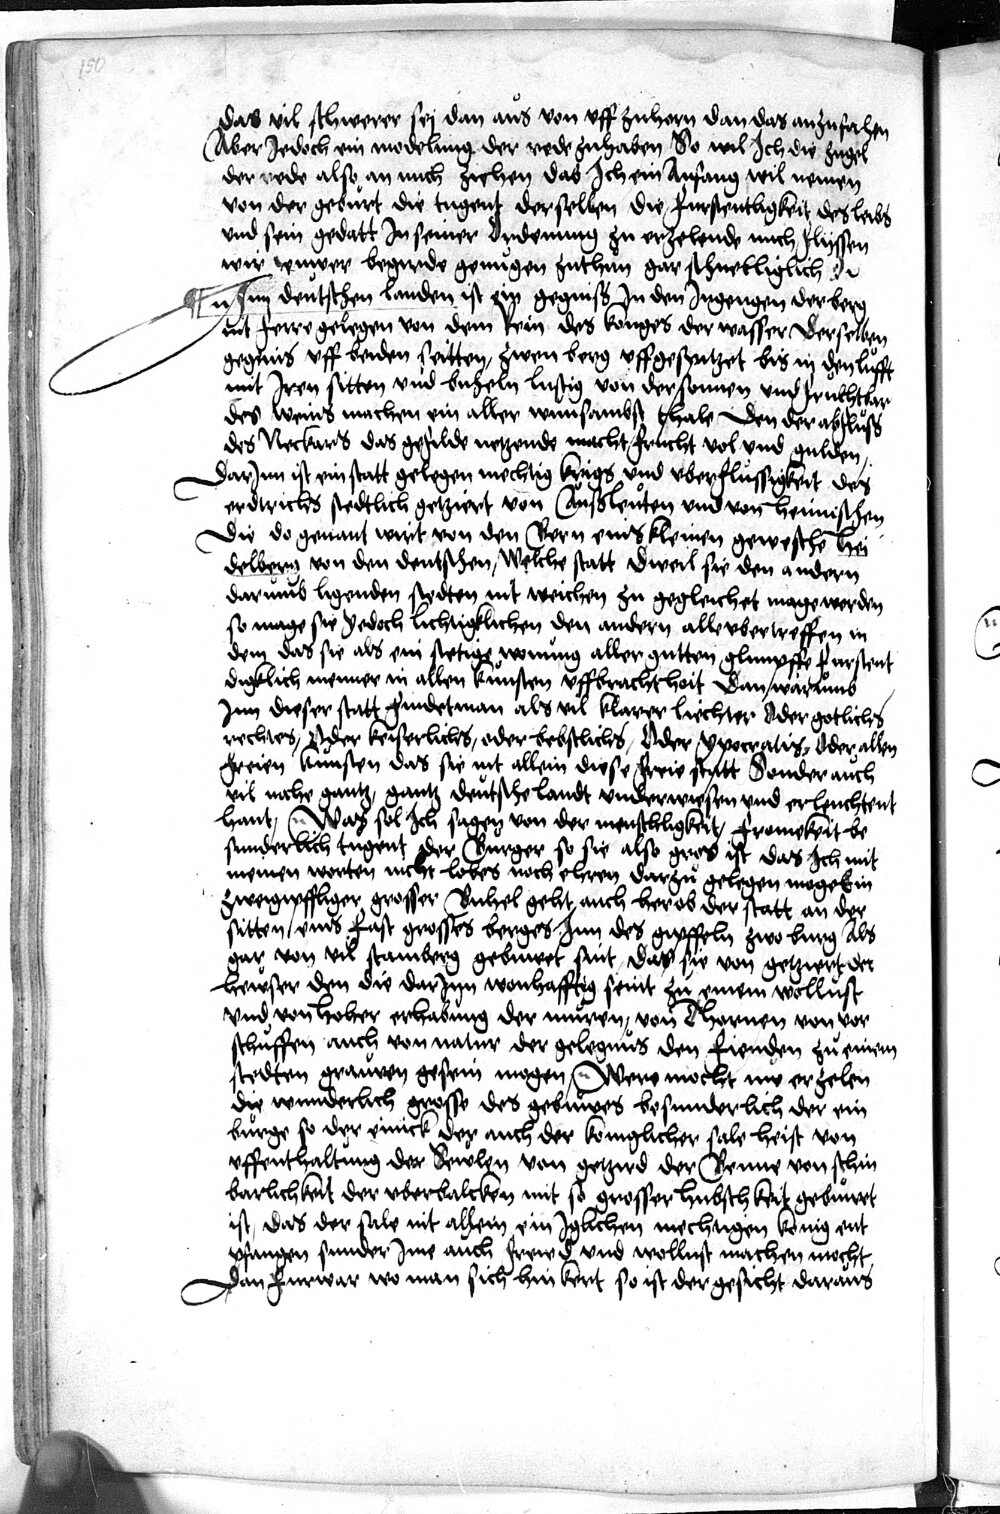 150
das vil schwerer sej dan aus von uff zuhorn dan das anzufahen
Aber Jedoch ein modelung der rede zuhaben So wil Ich die zugel
der rede also an mich ziehen das Ich ein Anfang wil nemen
von der geburt die tugent derselben die furstentligkeit des leibs
und sein gedatt In seiner Ordenung zu erzelende mich flyssen
wir euwer begirde genugen zuthun gar schnelliglich
In deutschen landen ist ein gegniss In den Ingengen der berg
nit ferre gelegen von dem Rein des koniges der wasser Derselben
gegnis uff beiden seitten zwen berg uffgespitzet bis in den lufft
mit Iren sitten und buheln lustig von der sonnen und fruchtbar
des weins machen ein aller wunsambst thale Den der abfluss
des Neckars das gefilde netzende macht frucht vol und gulden
Dar Inn ist ein statt gelegen mechtig krigs und uberflussigkeit des
erdtrichs stedtlich getziert von Ausleuten und von heimischen
Die do genant wirt von den Bern eins kleinen gewesche hei
delberg von den deutschen, Welche statt Dweil sie den andern
darumb ligenden stedten nit weichen zu gegleichet mage werden
so mage sie Jedoch lichtigklichen den andern alle ubertreffen in
dem das sie als ein stetige wonung aller gutten glimpffe furstent
digklich menner in allen kunsten uffbracht hoit Dan warumb
Inn dieser statt findet man als vil klarer liechter Oder gotlichs
rechtes, Oder keiserlichs, oder bebstlichs, Oder ypocratis, Oder allen
freien kunsten das sie nit allein diese freie statt Sonder auch
vil nahe gantz, gantz deutsche landt underwiesen und erleuchtent
hant, Was sol Ich sagen von der menschligkeit fromekeit be
sunderlich tugent der Burger so sie also gros ist das Ich mit
meinen worten nicht lobes noch ehren darzu gelegen moge Ein
zweigipffliger grosser Buhel geht auch herob der statt an der
sitten eins fast grosses berges Inn des gipffeln zwo burg Als
gar von vil stamberg gebuwet sint, Das sie von getziert der
hewser den die dar Inn wonhafftig seint zu einem wollust
und von hoher erhabung der muren, von Thornen von vor
schuffen auch von natur der gelegnus den fienden zu einem
stedten grauwen gesein mogen, Were mocht nu erzelen
die wunderlich grosse des gebuwes besunderlich der ein
burge so der einick der auch der koniglicher sale heist von
uffenthaltung der Sewlen von getzird der Benne von schin
barlichkeit der uberbalcken mit so grosser hubschkeit gebuwet
ist, das der sale nit allein ein Iglichen mechtigen konig ent
pfangen sunder Ime auch frewd und wollust machen mocht
Dan furwar wo man sich hin kert so ist der gesicht daraus